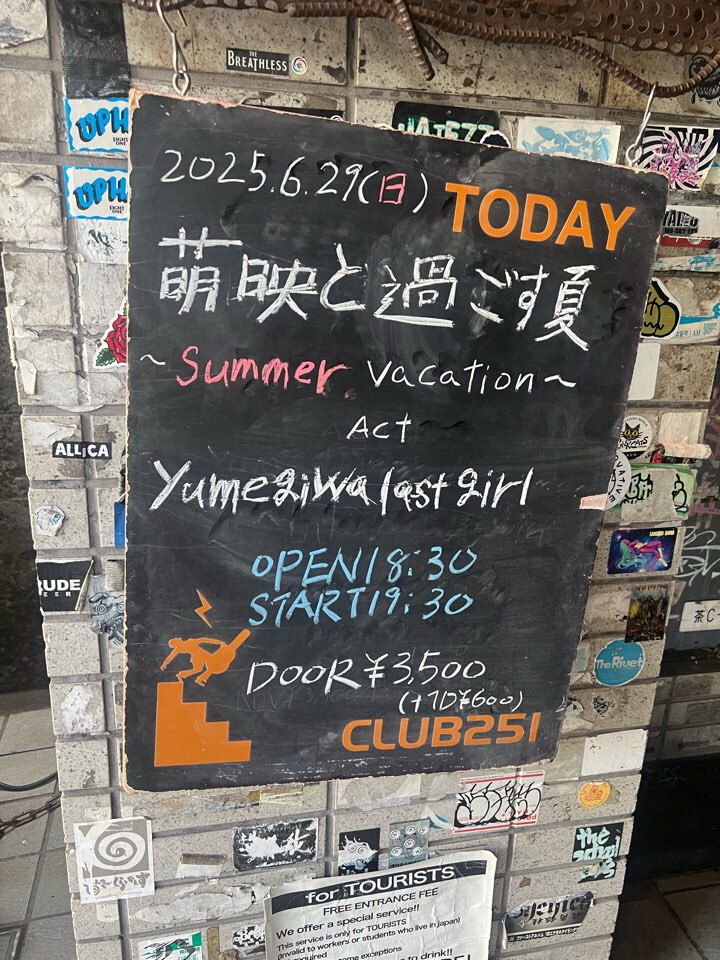 THE BREATHLESS
UPH
EIGHT ONE
UPH
EIGHT ONE
2025.6.29(日)
TODAY
萌映と過ごす夏
~Summer vacation~
ACT
Yumegiwa last girl
OPEN18:30
START19:30
DOOR ¥3,500
(+1D¥600)
CLUB251
ALLiCA
RUDE
The Rivet
茶C-
for TOURISTS
FREE ENTRANCE FEE
We offer a special service!!
This service is only for TOURISTS
(invalid to workers or students who live in japan)
required
some exceptions
to drink!!